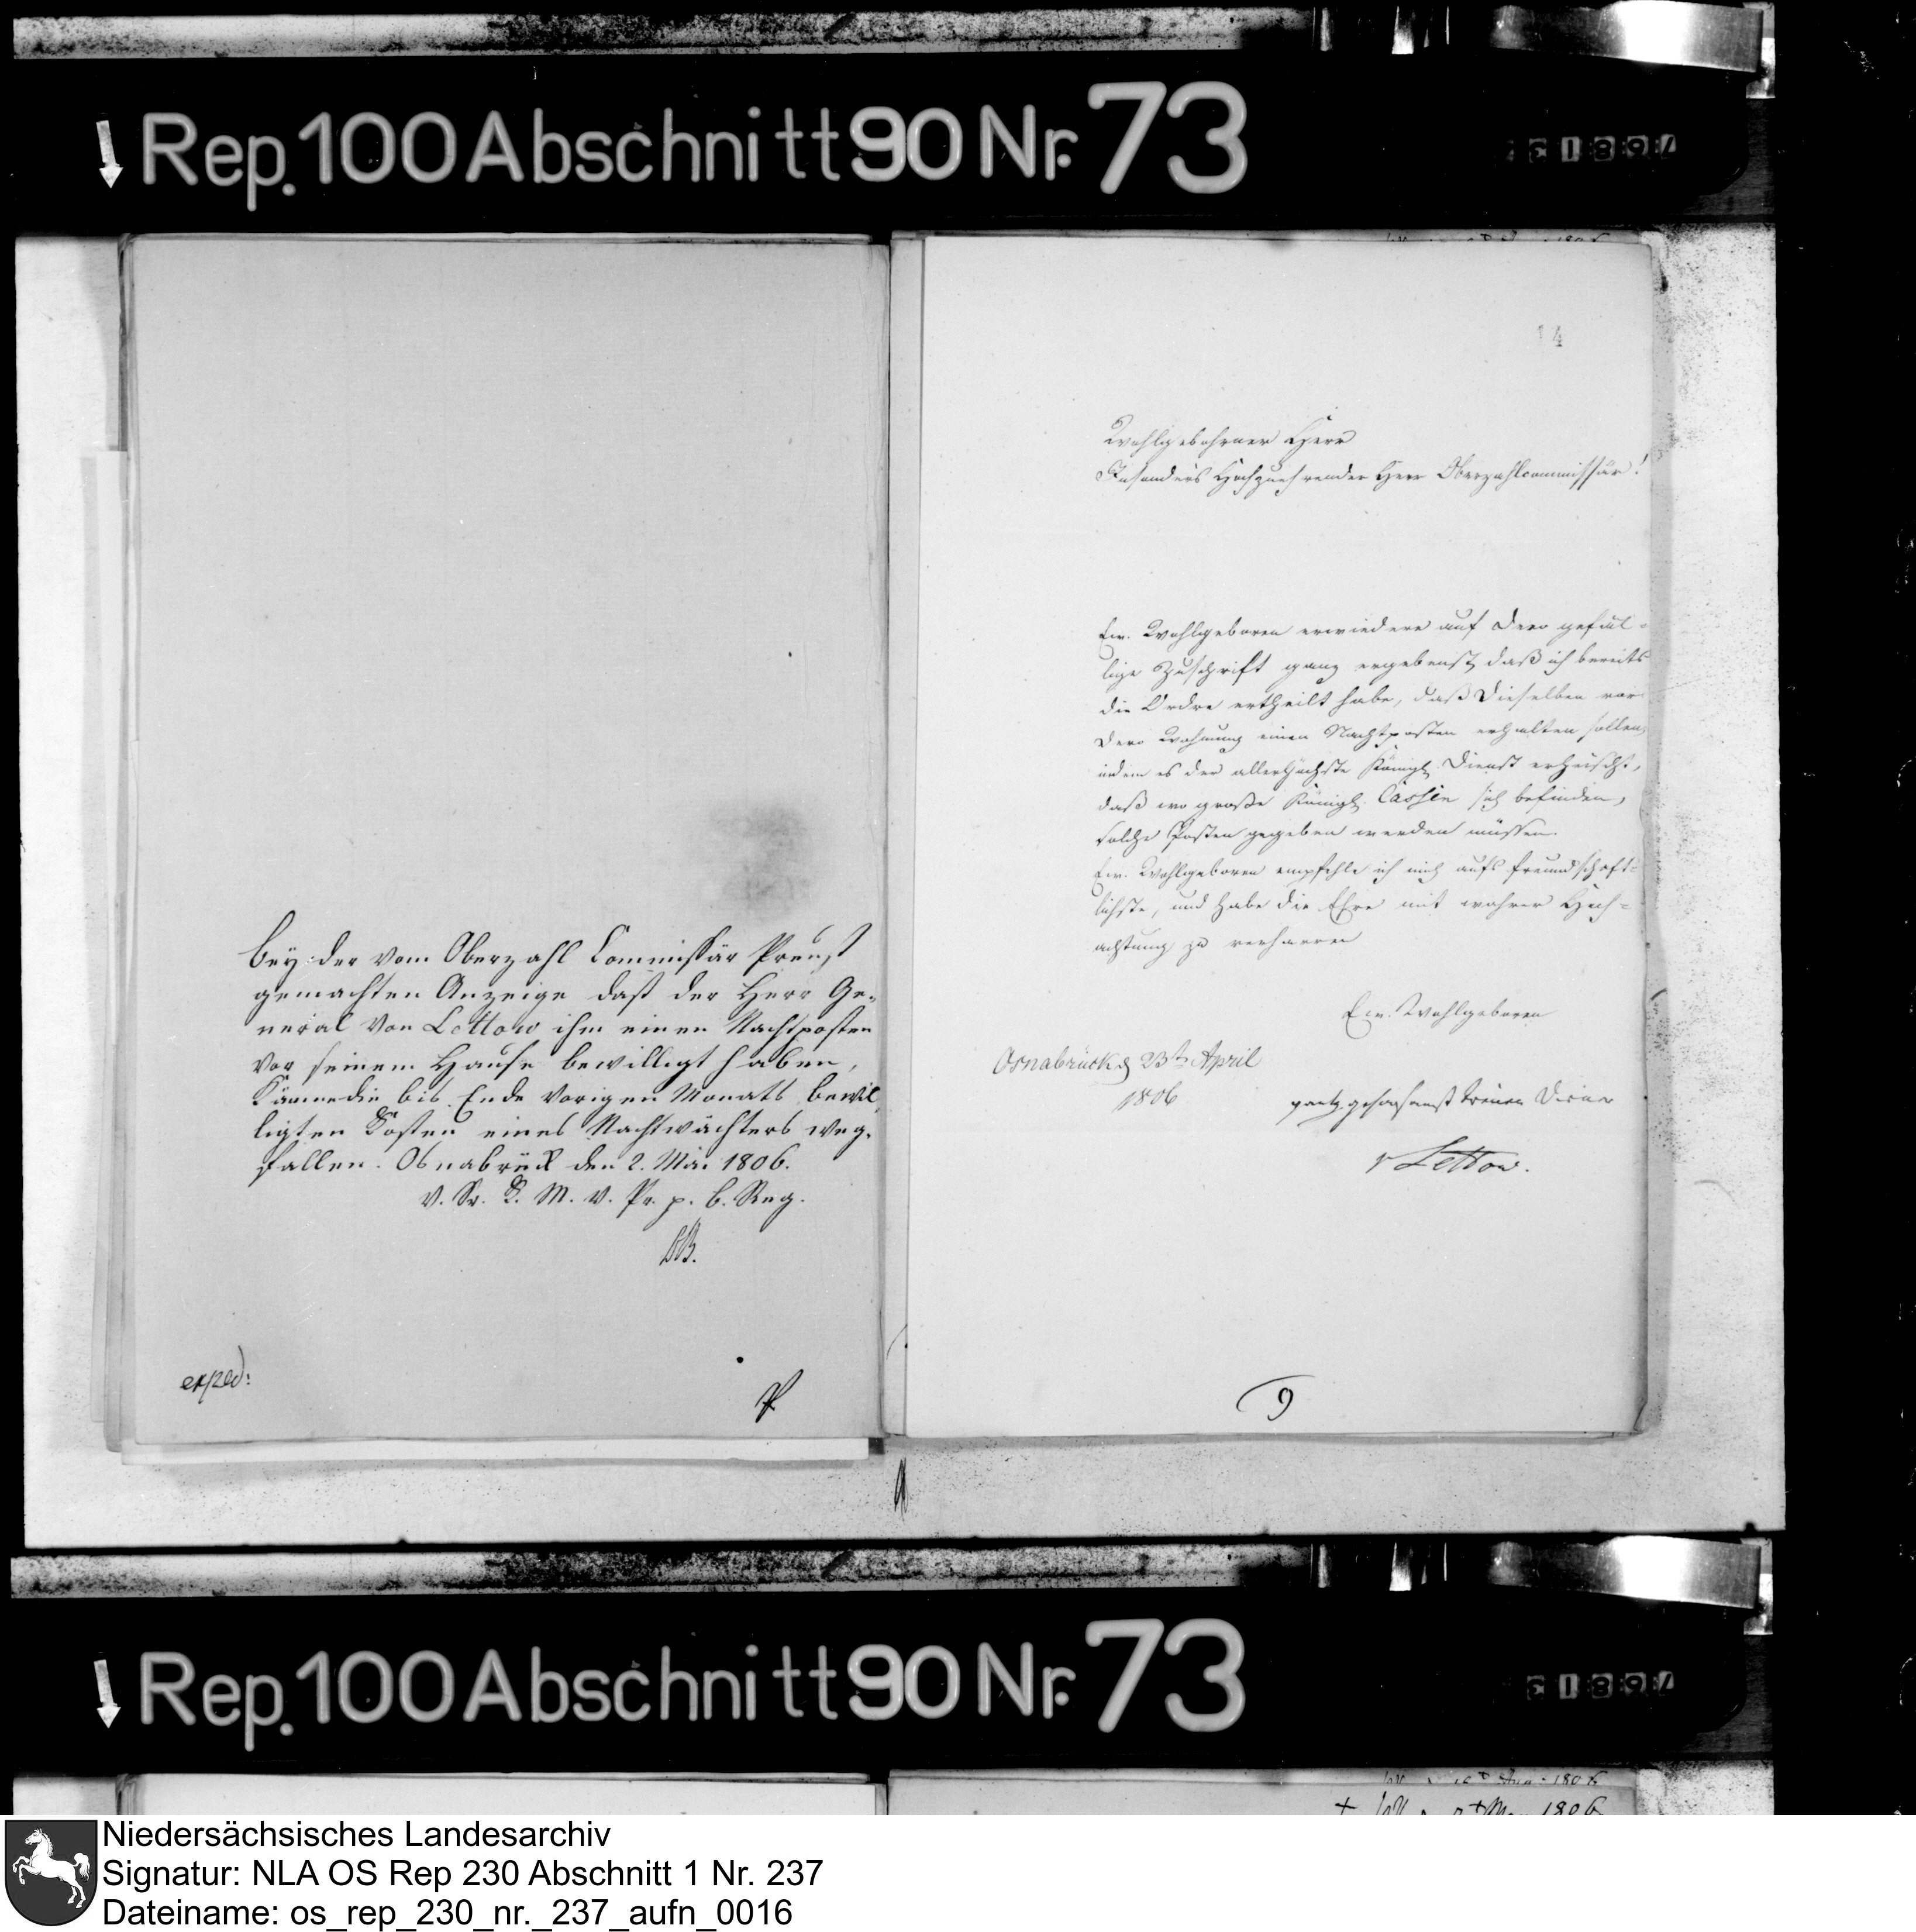 Rep. 100 Abschnitt 90 Nr. 73
Bey der vom Oberzahl Commissär Preuß
gemachten Anzeige daß der Herr Ge-
neral von Lettow ihm einen Nachtposten
vor seinem Hause bewilligt haben,
können die bis Ende vorigen Monats bewil
ligten Kosten eines Nachtwächters weg-
fallen. Osnabrück den 2. Mai 1806.
V. Sr. K. M. v. Pr. p. b. Reg.
exped:
14
Wohlgebohrner Herr
Insonders Hochzuehrender Herr Oberzahlcommissär!
Ew. Wohlgeboren erwiedere auf Dero gefäl-
lige Zuschrift ganz ergebenst, daß ich bereits
die Ordre ertheilt habe, daß Dieselben vor
Dero Wohnung einen Nachtposten erhalten sollen,
indem es der allerhöchste Königl. Dienst erheischt,
daß wo große Königl. Cassen sich befinden,
solche Posten gegeben werden müssen.
Ew. Wohlgeboren empfehle ich mich aufs freundschaft-
lichste, und habe die Ehre mit wahrer Hoch-
achtung zu verharren
Ew. Wohlgeboren
Osnabrück d 23t April
1806
gantz gehorsamst treuer Diener
v Lettow.
9
Rep. 100 Abschnitt 90 Nr. 73
1806
Niedersächsisches Landesarchiv
Signatur: NLA OS Rep 230 Abschnitt 1 Nr. 237
Dateiname: os_rep_230_nr._237_aufn_0016